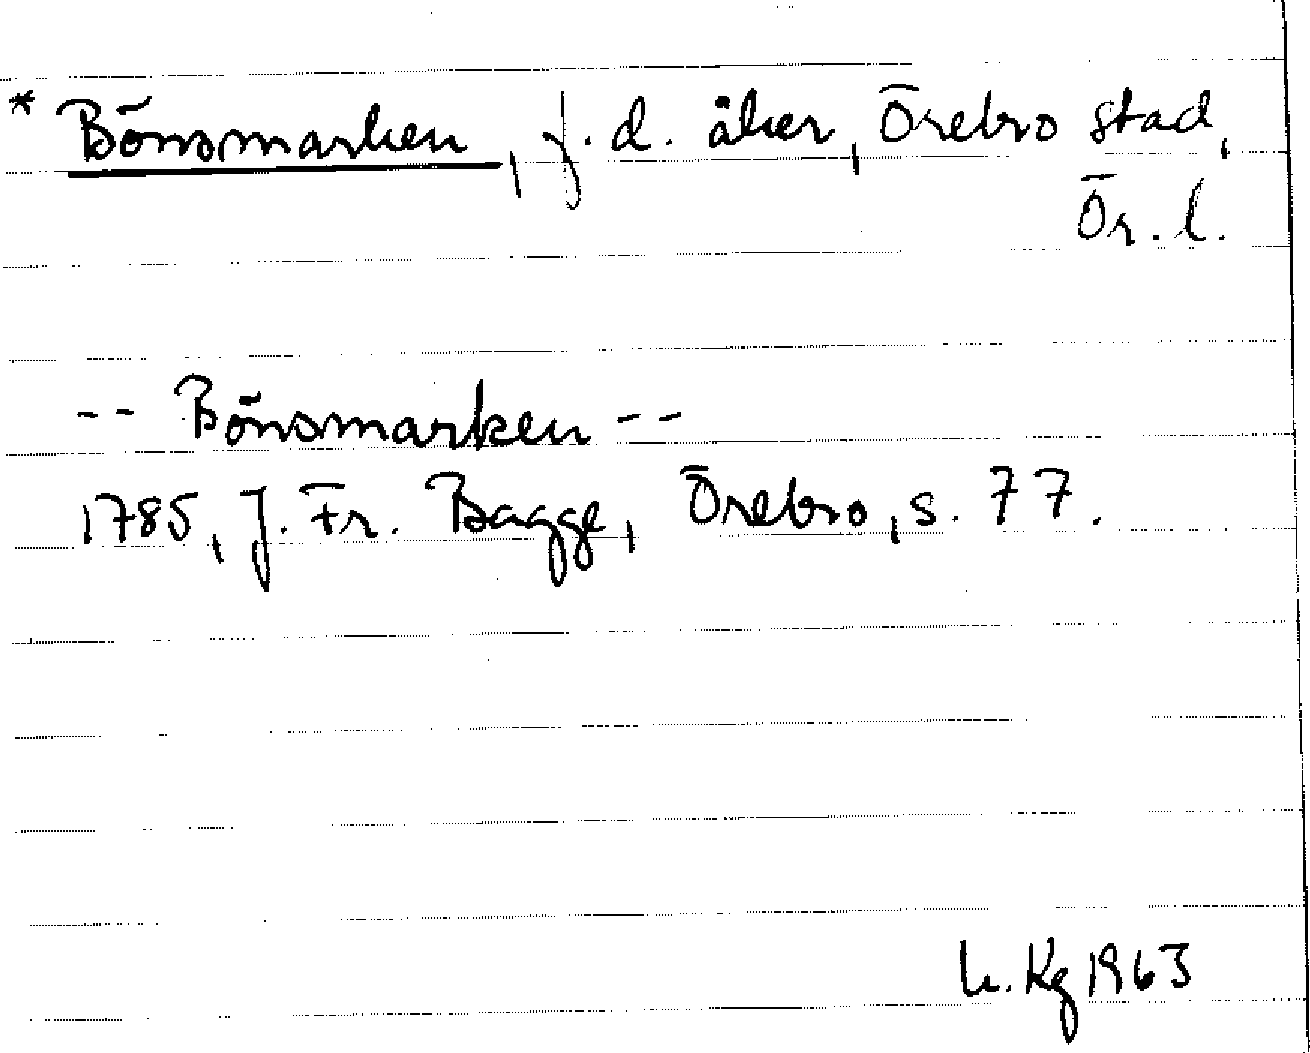 * Bönsmarken, f. d. åker, Örebro stad,
Ör. l.
-- Bönsmarken --
1785, J. Fr. Bagge, Örebro, s. 77.
Kg 1963